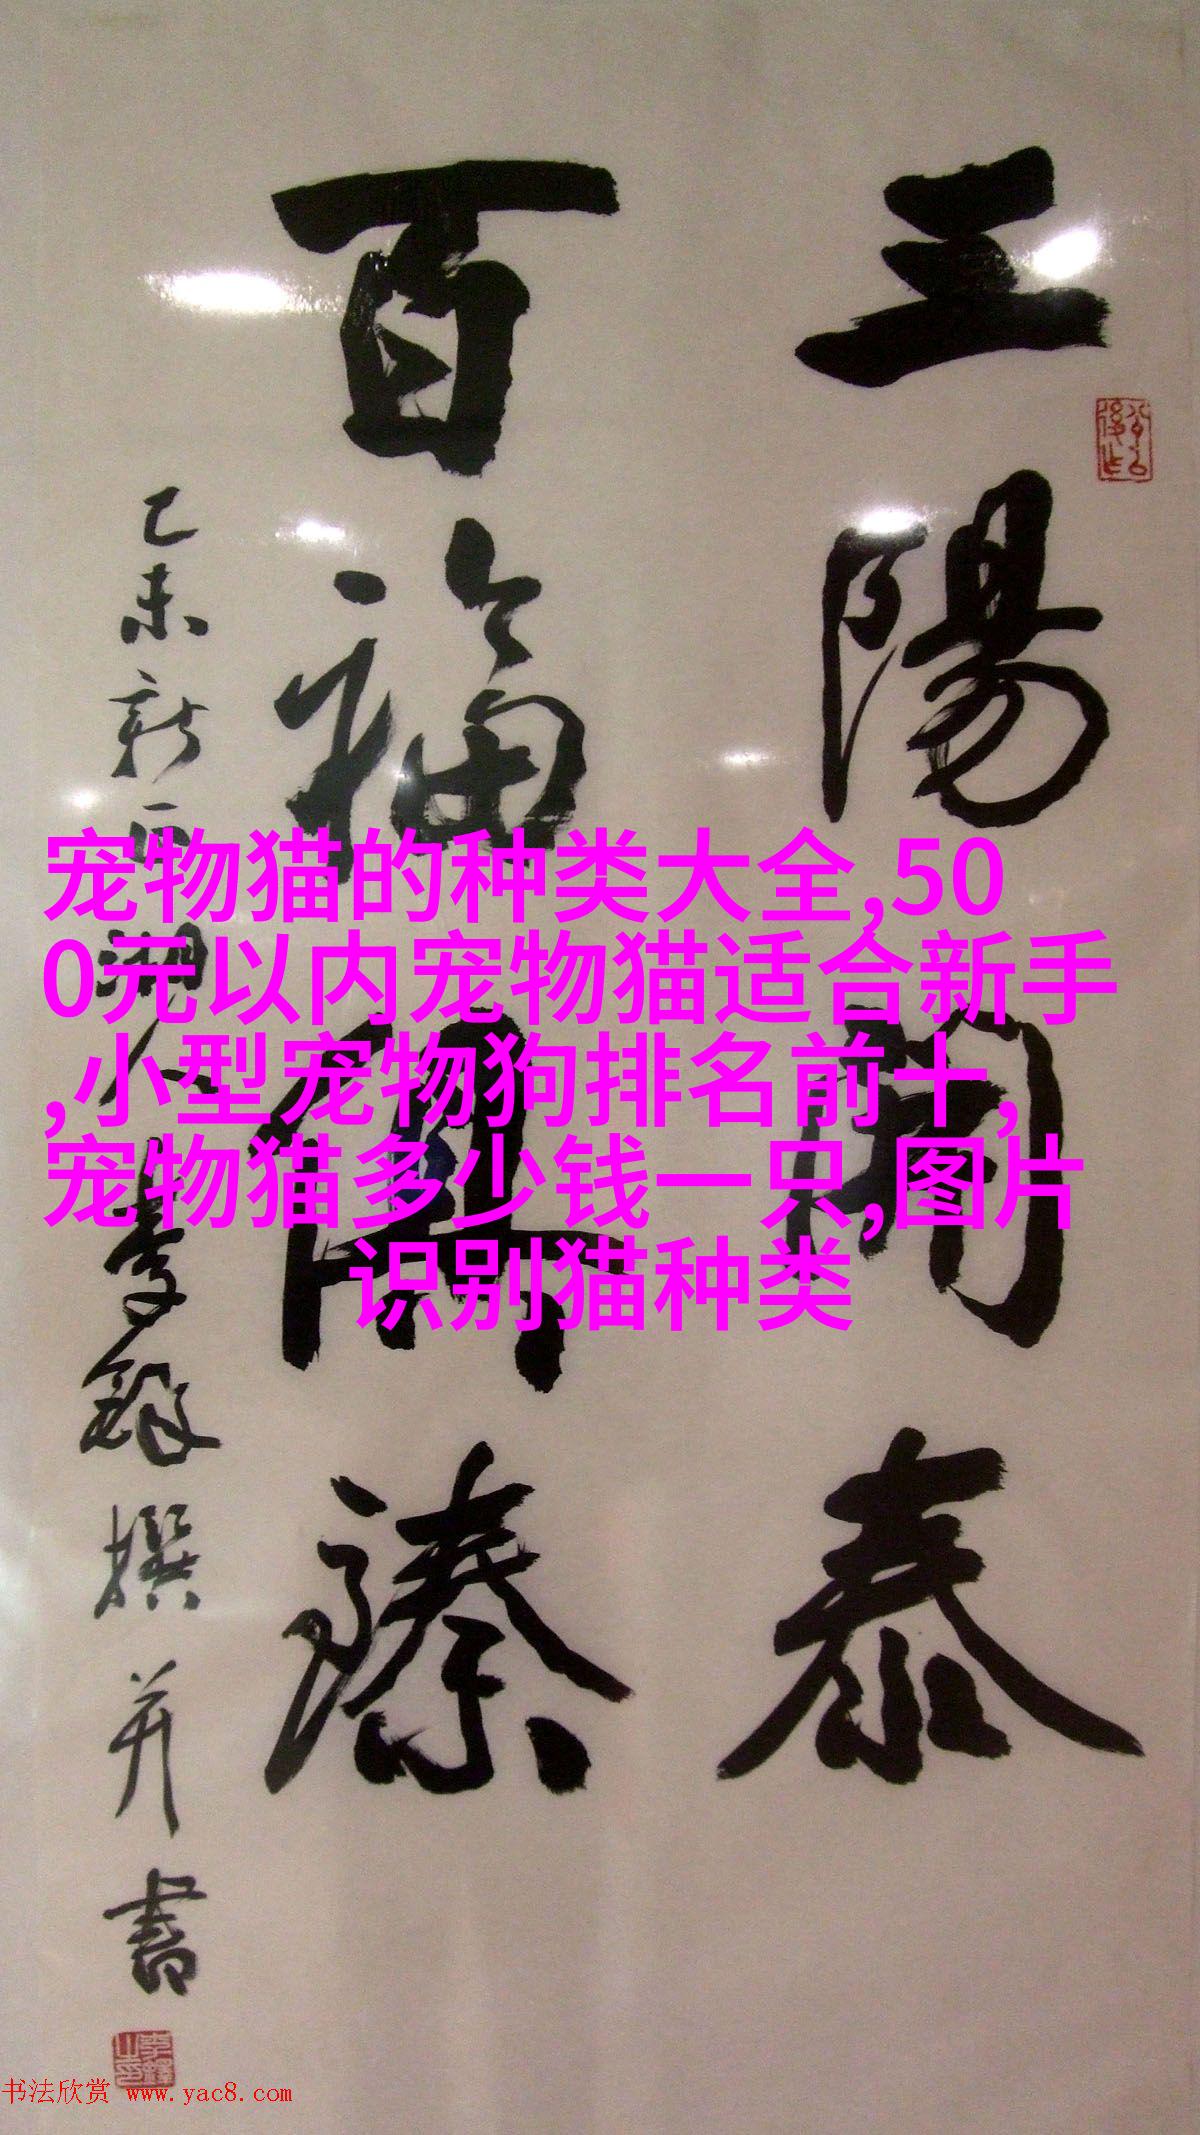 三陽開泰
百福俱臻
乙未新正湖人李鐸撰并書
宠物猫的种类大全,50
0元以内宠物猫适合新手
,小型宠物狗排名前十,
宠物猫多少钱一只,图片
识别猫种类
书法欣赏 www.yac8.com